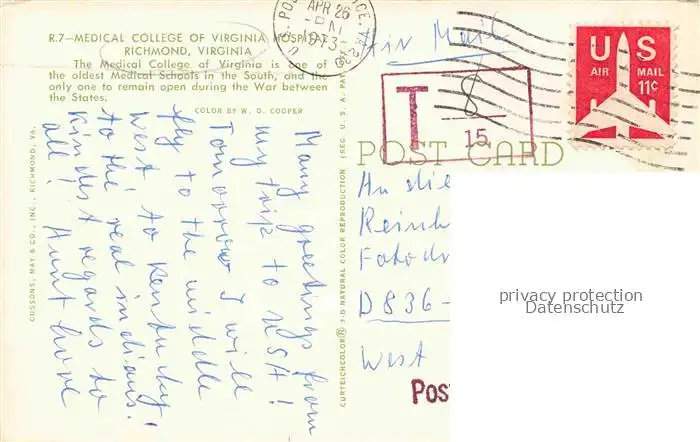 R.7—MEDICAL COLLEGE OF VIRGINIA HOSPITAL
RICHMOND, VIRGINIA
The Medical College of Virginia is one of
the oldest Medical Schools in the South, and the
only one to remain open during the War between
the States.
COLOR BY W. G. COOPER
CUSSONS, MAY & CO., INC., RICHMOND, VA.
Many greetings from
my trip to USA!
Tomorrow I will
fly to the middle
west to Kentucky,
to the real indians!
Kindest regards to
all!
CURTEICHCOLOR® 3-D NATURAL COLOR REPRODUCTION (REG. U. S. A. PAT.
APR 26
PM
1973
Air Mail
US
AIR MAIL
11c
T 8
15
POST CARD
An die
Reinh
Fotodr
D 836-
West
Pos
privacy protection
Datenschutz